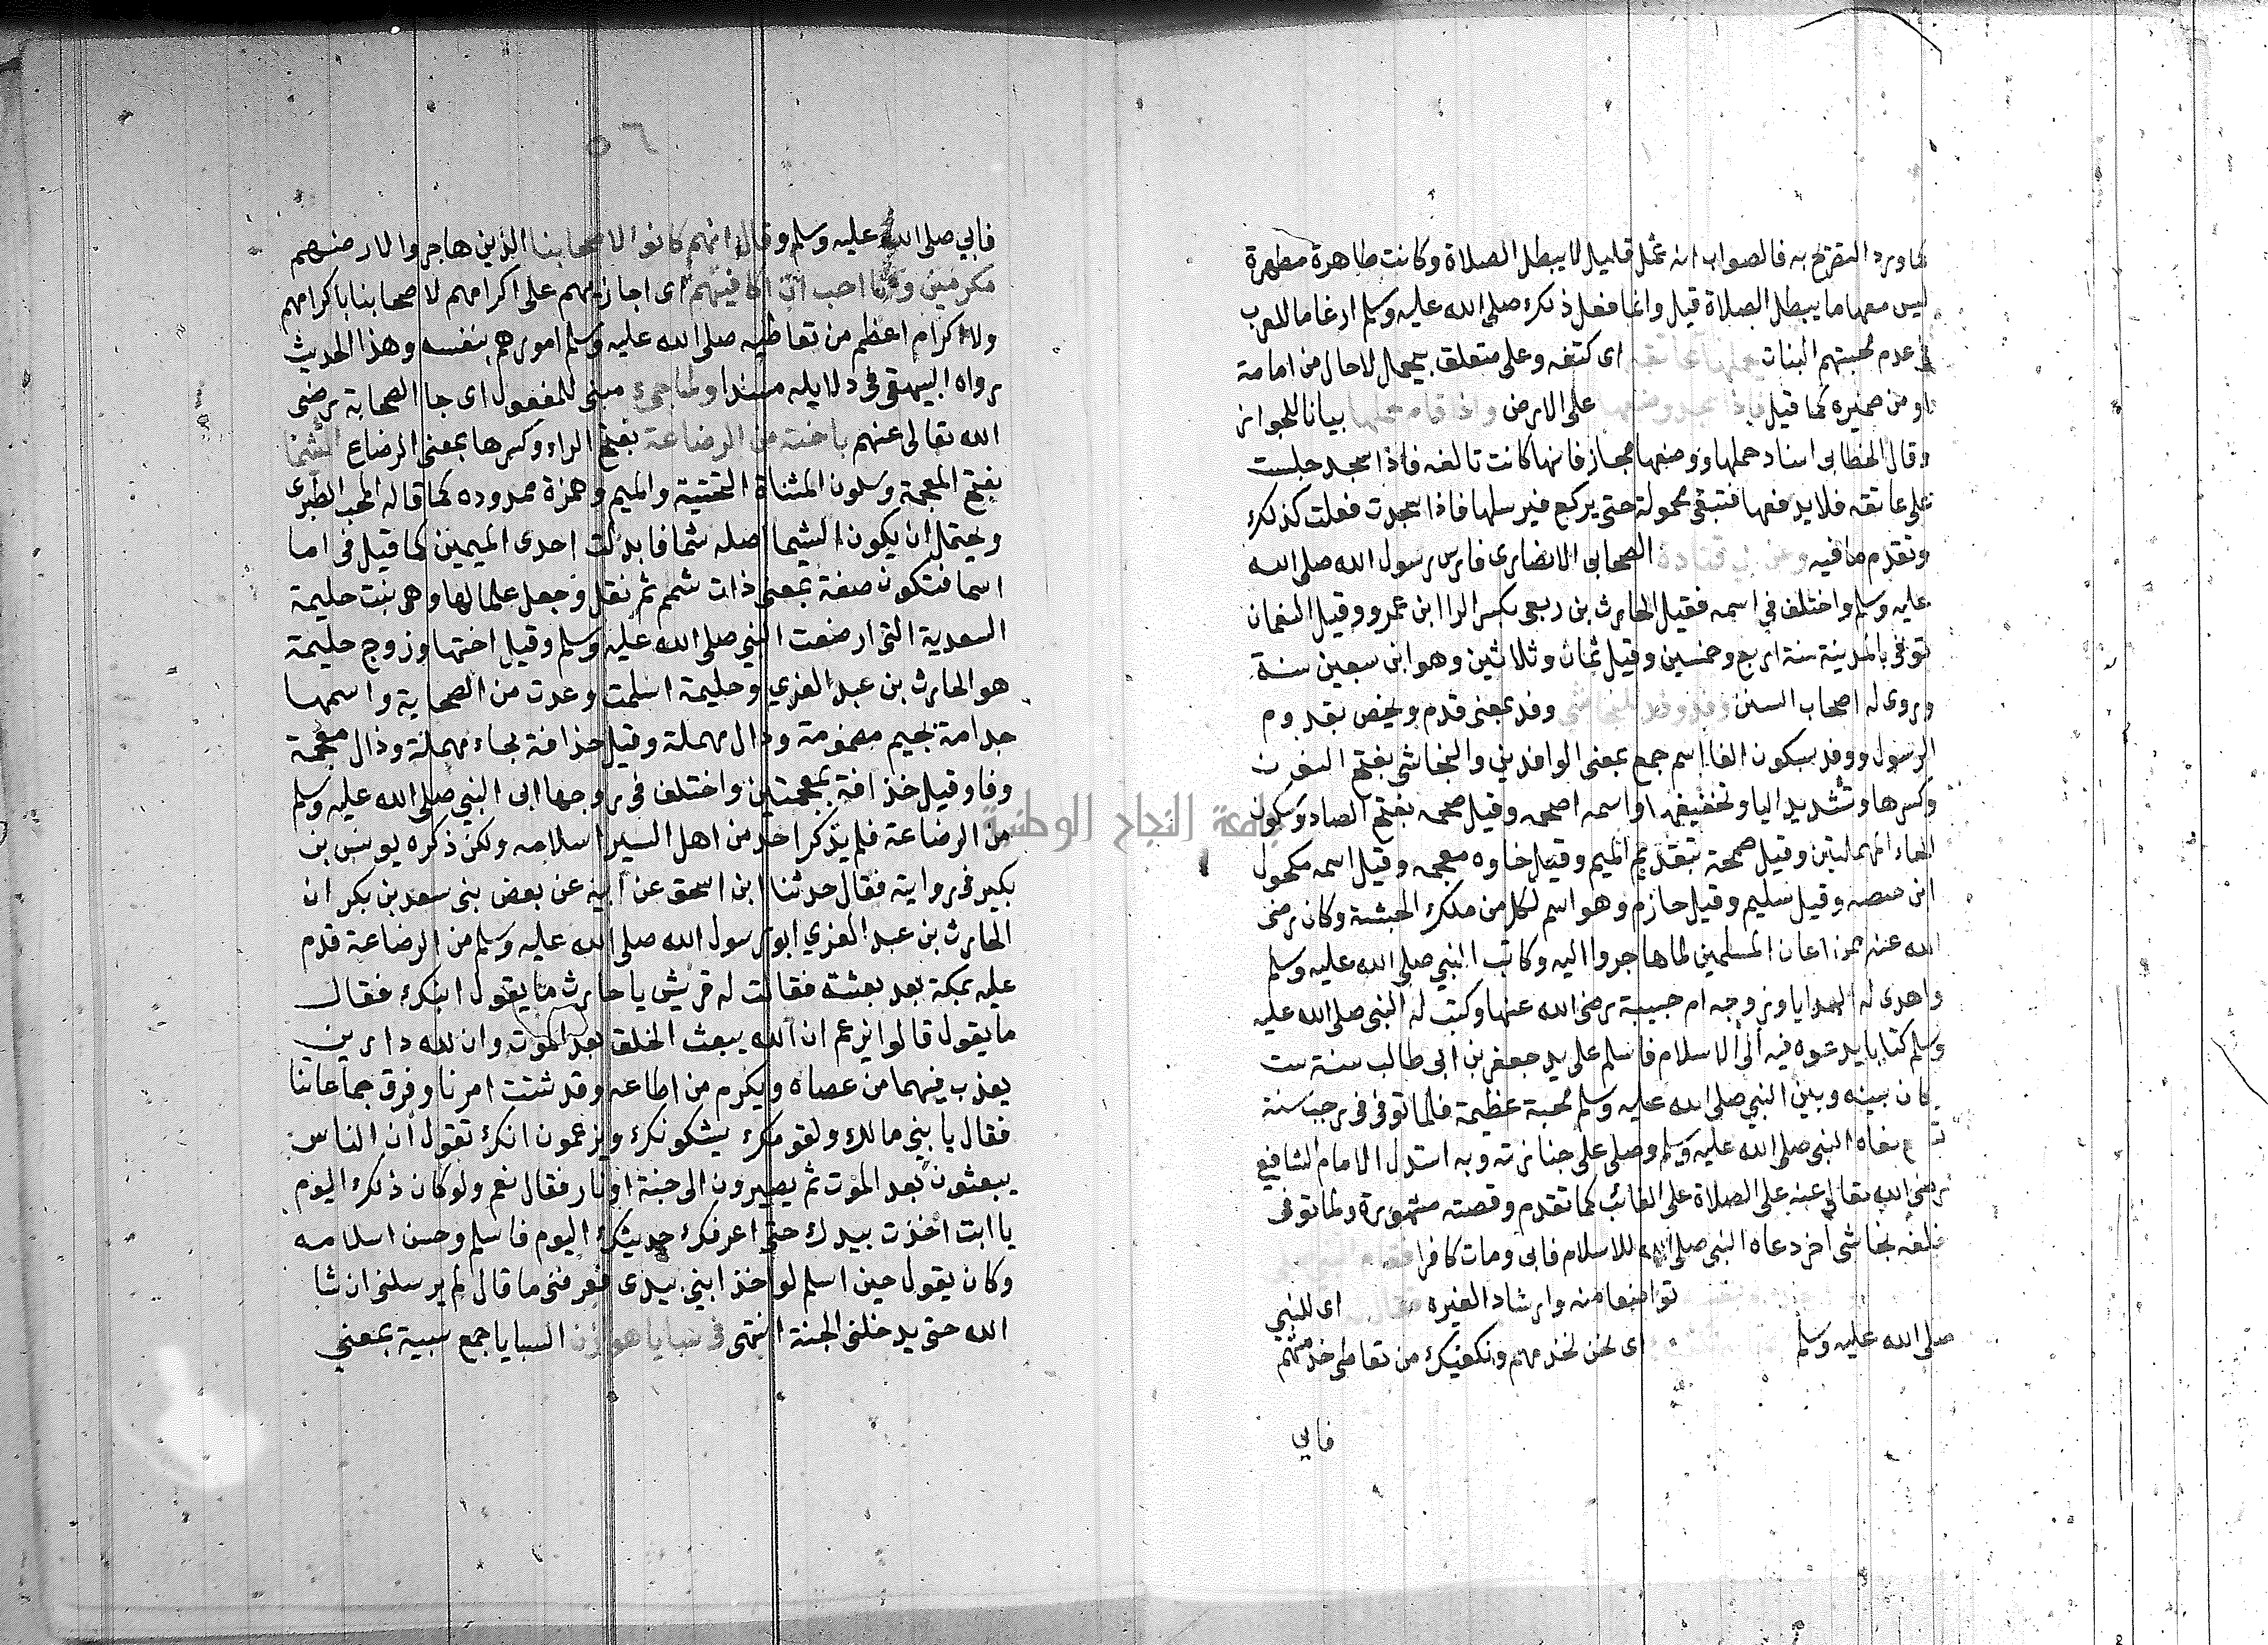 كما ورد التصريح به فالصواب انه عمل قليل لا يبطل الصلاة وكانت طاهرة مطهرة
ليس معها ما يبطل الصلاة قيل وانما فعل ذلك صلى الله عليه وسلم ارغاما للعرب
في عدم محبتهم البنات يحملها على عاتقه اى كتفه وعلى متعلق بيحمل لا حال من امامة
او من ضميره كما قيل فاذا سجد وضعها على الارض واذا قام حملها بيانا للجواز
وقال الخطابى اسناد حملها ووضعها مجاز فانها كانت تالفه فاذا سجد جلست
على عاتقه فلا يدفعها فتبقى محمولة حتى يركع فيرسلها فاذا سجدت فعلت كذلك
وتقدم ما فيه وعن ابي قتادة الصحابى الانصارى فارس رسول الله صلى الله
عليه وسلم واختلف في اسمه فقيل الحارث بن ربعى بكسر الرا ابن عمرو وقيل النعمان
توفى بالمدينة سنة اربع وخمسين وقيل ثمان وثلاثين وهو ابن سبعين سنة
وروى له اصحاب السنن وفد وفد للنجاشى وفد بمعنى قدم ويخص بقدوم
الرسول ووفد بسكون الفا اسم جمع بمعنى الوافدين والنجاشى بفتح النون
وكسرها وتشديد اليا وتخفيفها واسمه اصحمه وقيل صحمه بفتح الصاد وسكون
الحاء المهملتين وقيل صمحة بتقديم الميم وقيل خاوه معجمه وقيل اسمه مكحول
ابن صصه وقيل سليم وقيل حازم وهو اسم لكل من ملك الحبشة وكان رضى
الله عنه ممن اعان المسلمين لما هاجروا اليه وكاتب النبي صلى الله عليه وسلم
واهدى له الهدايا وزوجه ام حبيبة رضى الله عنها وكتب له النبى صلى الله عليه
وسلم كتابا يدعوه فيه الى الاسلام فاسلم على يد جعفر بن ابى طالب سنة ست
كان بينه وبين النبي صلى الله عليه وسلم محبة عظيمة فلما توفى فى رجب سنة
تسع نعاه النبى صلى الله عليه وسلم وصلى على جنازته وبه استدل الامام الشافعي
رضى الله تعالى عنه على الصلاة على الغائب كما تقدم وقصته مشهورة ولما توفى
خلفه نجاشى اخر دعاه النبى صلى الله للاسلام فابى ومات كافرا
تواضعا منه وارشادا لغيره اى للنبي
صلى الله عليه وسلم اى نحن نخدمهم ونكفيك من تعاطى خدمتهم
فابى
٥٦
فابي صلى الله عليه وسلم وقال انهم كانوا لاصحابنا الذين هاجروا لارضهم
مكرمين وانا احب ان اكافيهم اى اجازيهم على اكرامهم لاصحابنا باكرامهم
ولا اكرام اعظم من تعاطيه صلى الله عليه وسلم امورهم بنفسه وهذا الحديث
رواه البيهقى فى دلايله مسندا ولما جىء مبنى للمفعول اى جا الصحابة رضى
الله تعالى عنهم باخته من الرضاعة بفتح الراء وكسرها بمعنى الرضاع الشيما
بفتح المعجمة وسكون المثناة التحتية والميم وهمزة ممدوده كما قاله المحب الطبرى
ويحتمل ان يكون الشيما اصله شما فابدلت احدى الميمين كما قيل فى اما
اسما فتكون صفة بمعنى ذات شمم ثم نقل وجعل علما لها وهى بنت حليمة
السعدية التى ارضعت النبي صلى الله عليه وسلم وقيل اختها وزوج حليمة
هو الحارث بن عبد العزي وحليمة اسلمت وعدت من الصحابة واسمها
جدامة بجيم مضمومة ودال مهملة وقيل حذافة بحاء مهملة وذال معجمة
وفا وقيل خذافة بمعجمتين واختلف فى زوجها ابى النبي صلى الله عليه وسلم
من الرضاعة فلم يذكر احد من اهل السير اسلامه ولكن ذكره يونس بن
بكير فى رواية فقال حدثنا ابن اسحق عن ابيه عن بعض بنى سعد بن بكر ان
الحارث بن عبد العزي ابو رسول الله صلى الله عليه وسلم من الرضاعة قدم
عليه بمكة بعد بعثته فقالت له قريش يا حارث ما يقول ابنك فقال
ما يقول قالوا يزعم ان الله يبعث الخلق بعد الموت وان لله دارين
يعذب فيهما من عصاه ويكرم من اطاعه وقد شتت امرنا وفرق جماعاتنا
فقال يا بني مالك ولقومك يشكونك ويزعمون انك تقول ان الناس
يبعثون بعد الموت ثم يصيرون الى جنة او نار فقال نعم ولو كان ذلك اليوم
يا ابت اخذت بيدك حتى اعرفك حديثك اليوم فاسلم وحسن اسلامه
وكان يقول حين اسلم لو اخذ ابني بيدى فعرفنى ما قال لم يرسلنى ان شا
الله حتى يدخلنى الجنة انتهى فى سبايا هوازن السبايا جمع سبية بمعني
جامعة النجاح الوطنية